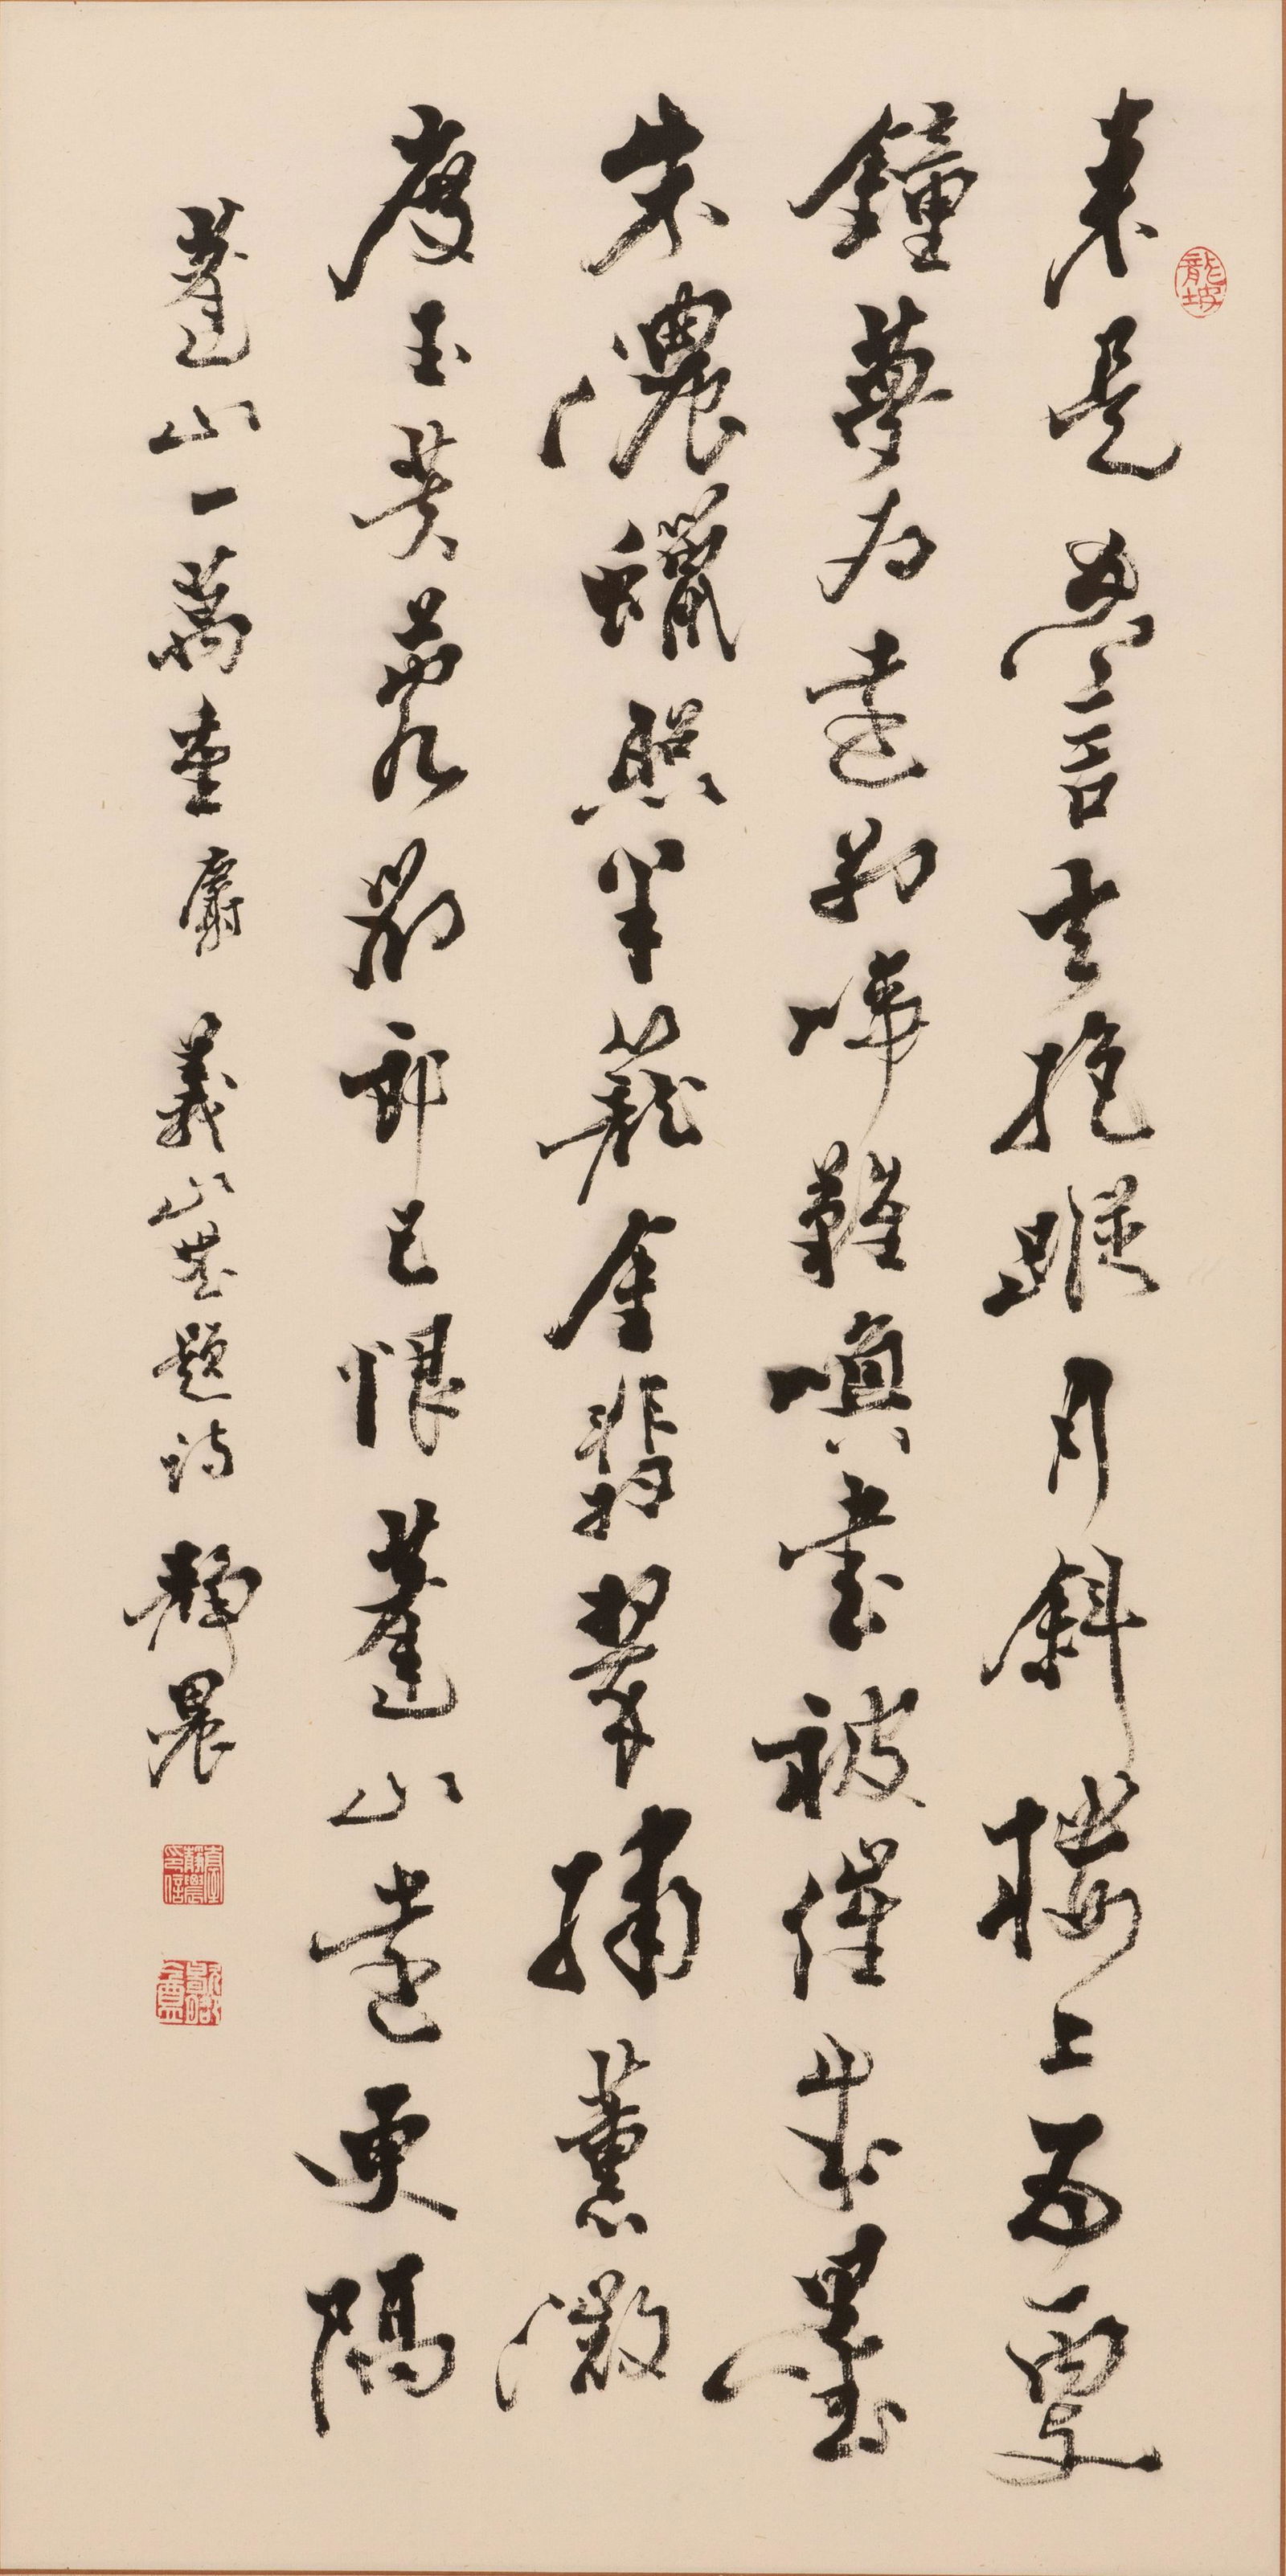 龍坡
來是空言去絕蹤月斜樓上五更
鐘夢為遠別啼難喚書被催成墨
未濃蠟照半籠金翡翠繡薰微
度玉芙蓉劉郎已恨蓬山遠更隔
蓬山一萬重 麝 義山無題詩 靜農
臺靜農印信
歇腳盦